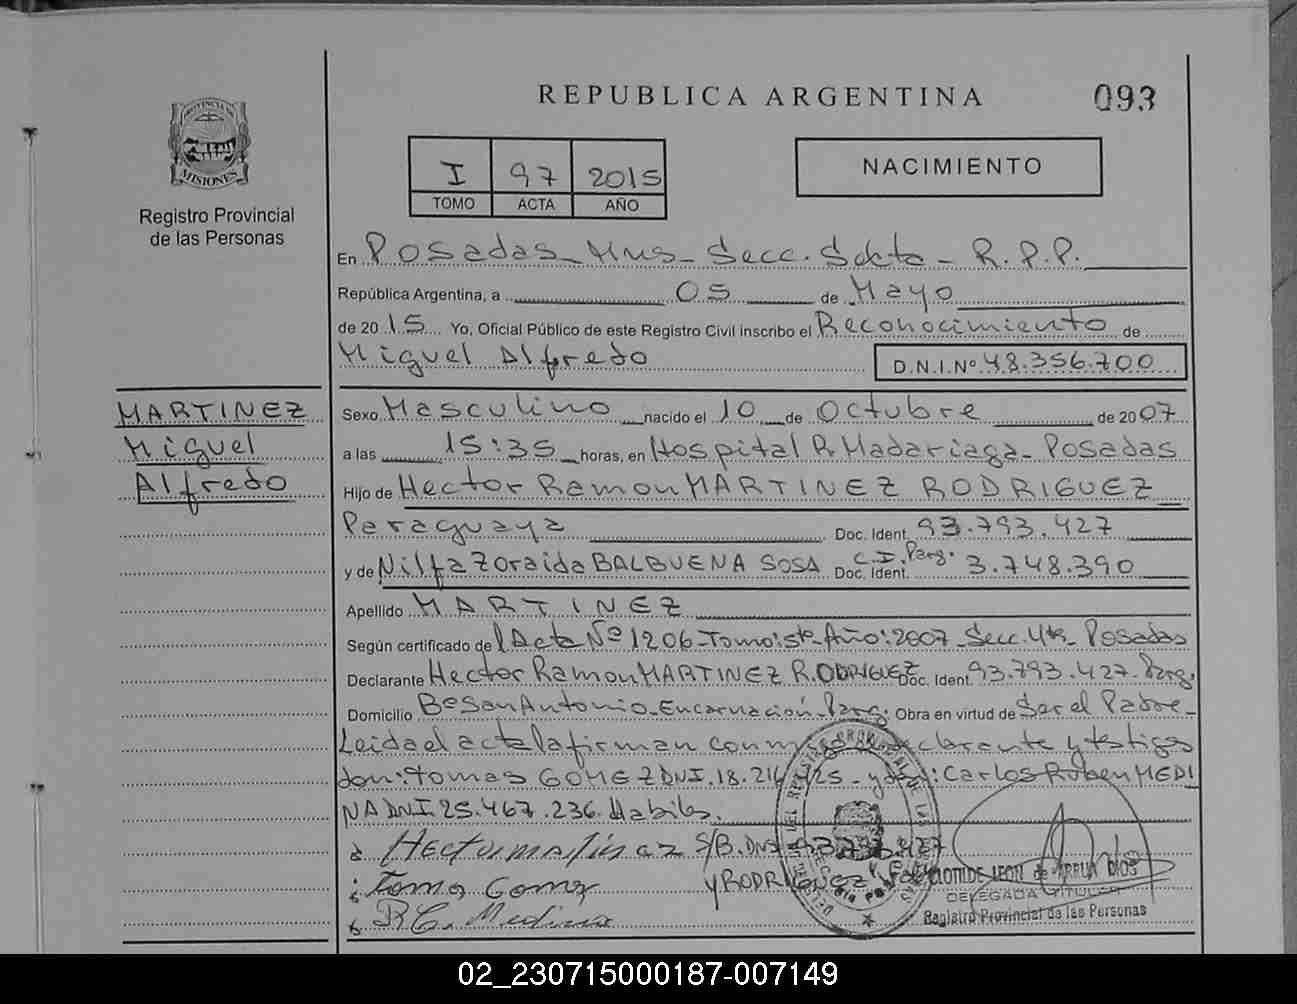 REPUBLICA ARGENTINA
093
PROVINCIA DE
MISIONES
Registro Provincial
de las Personas
I 97 2015
TOMO ACTA AÑO
NACIMIENTO
En Posadas - Mns - Secc. Sexta - R.P.P.
República Argentina, a 05 de Mayo
de 2015 Yo, Oficial Público de este Registro Civil inscribo el Reconocimiento de
Miguel Alfredo D.N.I.Nº 48.356.700
MARTINEZ
Miguel
Alfredo
Sexo Masculino nacido el 10 de Octubre de 2007
a las 15:35 horas, en Hospital R. Madariaga - Posadas
Hijo de Hector Ramon MARTINEZ RODRIGUEZ
Paraguaya Doc. Ident. 93.793.427
y de Nilfa Zoraida BALBUENA SOSA C.I. Parg. Doc. Ident. 3.748.390
Apellido MARTINEZ
Según certificado de l Acta Nº 1206 - Tomo: 5to - Año: 2007 - Secc. 4ta - Posadas
Declarante Hector Ramon MARTINEZ RODRIGUEZ Doc. Ident. 93.793.427 - Parg.
Domicilio Bº San Antonio - Encarnación - Parg. Obra en virtud de Ser el Padre -
Leida el acta la firman conmigo declarante y testigos
don: Tomas GOMEZ DNI. 18.216. 125 - y don: Carlos Ruben MEDI
NA DNI 25.467.236. Habiles.
Hector martinez S/B. DNI 93.793.427
Tomas Gomez y RODRIGUEZ
R C. Medina
CLOTILDE LEON de ARRUA DIOS
DELEGADA TITULAR
Registro Provincial de las Personas
02_230715000187-007149